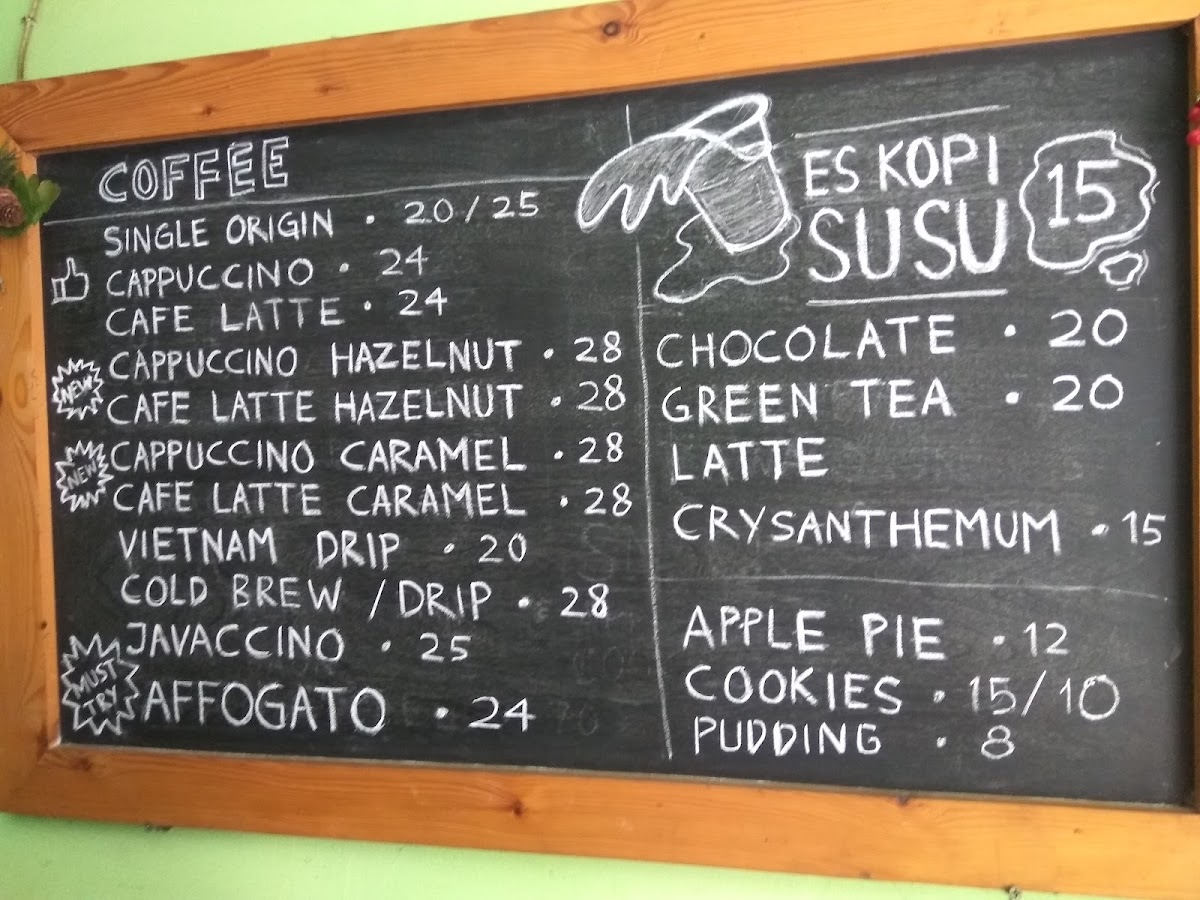 COFFEE
SINGLE ORIGIN · 20/25
CAPPUCCINO · 24
CAFE LATTE · 24
NEW
CAPPUCCINO HAZELNUT · 28
CAFE LATTE HAZELNUT · 28
NEW
CAPPUCCINO CARAMEL · 28
CAFE LATTE CARAMEL · 28
VIETNAM DRIP · 20
COLD BREW /DRIP · 28
JAVACCINO · 25
MUST
TRY
AFFOGATO · 24
ES KOPI
SUSU
15
CHOCOLATE · 20
GREEN TEA · 20
LATTE
CRYSANTHEMUM · 15
APPLE PIE · 12
COOKIES · 15/10
PUDDING · 8